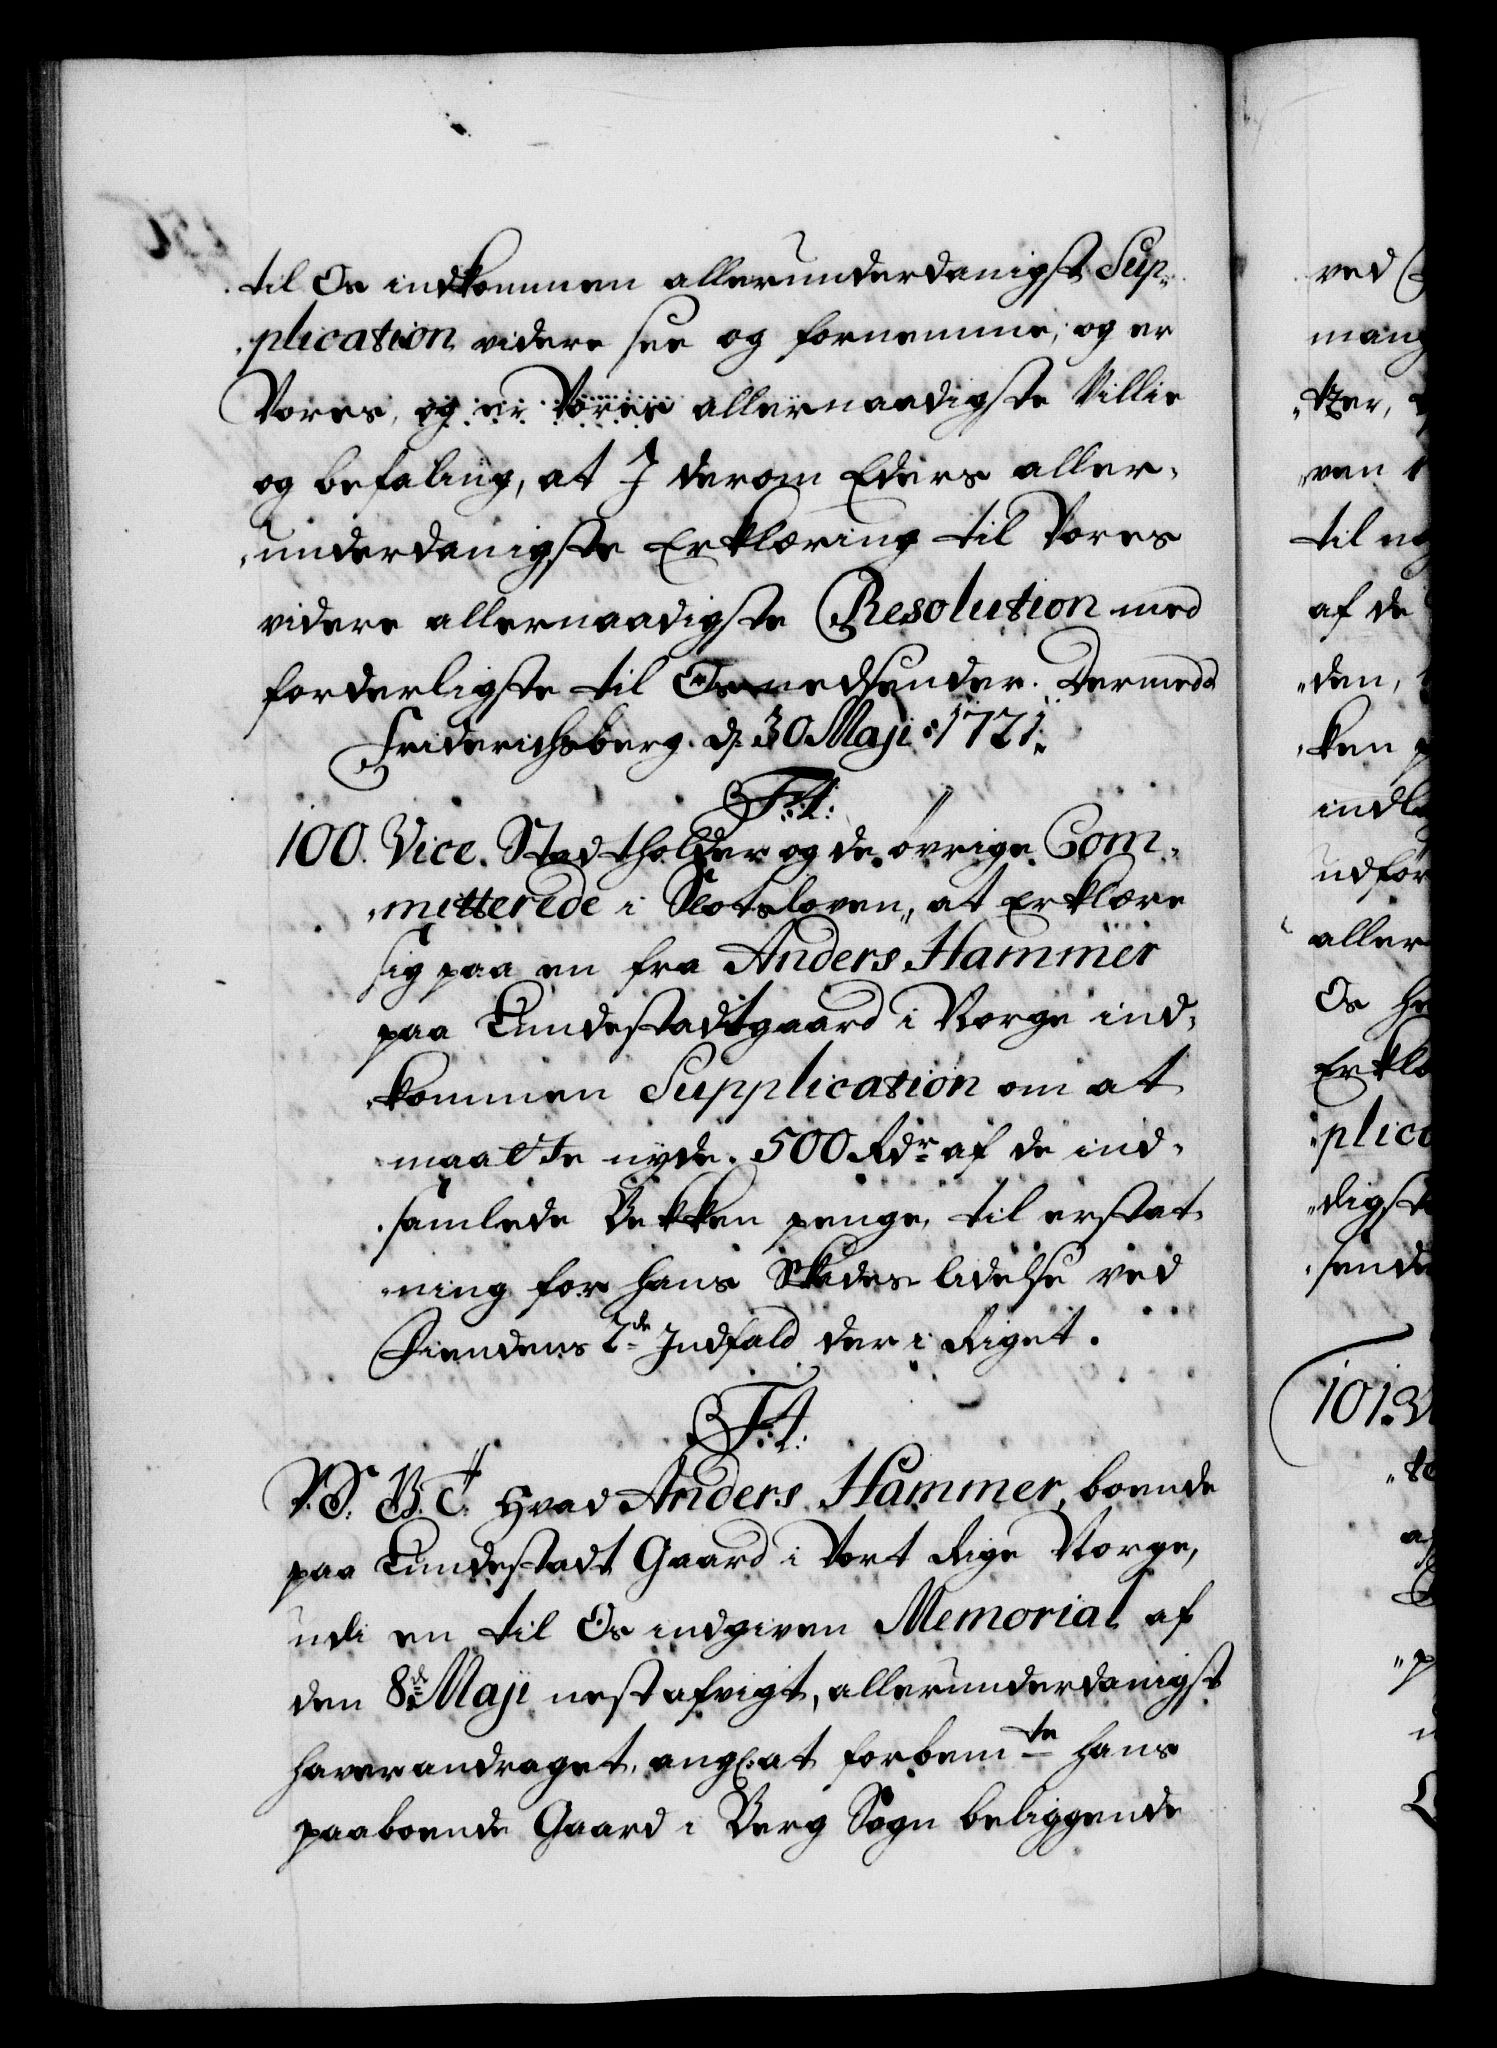 til Os indkommen allerunderdanigst Sup-
plication videre see og fornemme, og er
Vores, og er Vores allernaadigste Villie
og befaling, at I derom Eders aller-
underdanigste Erklæring til Vores
videre allernaadigste Resolution med
forderligste til Os nedsender. Dermed
Friderichsberg. d. 30 Maji 1721.
F:4:
100. Vice. Stadtholder og de øvrige Com-
mitterede i Slotsloven, at Erklære
sig paa en fra Anders Hammer
paa Tundestadtgaard i Norge ind-
kommen Supplication om at
maatte nyde. 500 Rdr af de ind-
samlede Bekken penge, til erstat-
ning for hans Skades lidelse ved
Fiendens 2de Indfald der i Riget.
F:4:
V.G.T. Hvad Anders Hammer, boende
paa Tundestadt Gaard i Vort Rige Norge,
udi en til Os indgiven Memorial af
den 8de Maji nest afvigt, allerunderdanigst
haver andraget, angl: at forbemte hans
paaboende Gaard i Berg Sogn beliggende
ved
mang
ven
til
af de
den,
ken
indl
udfør
aller
Os
Erklæ
plica
digst
sende
101.